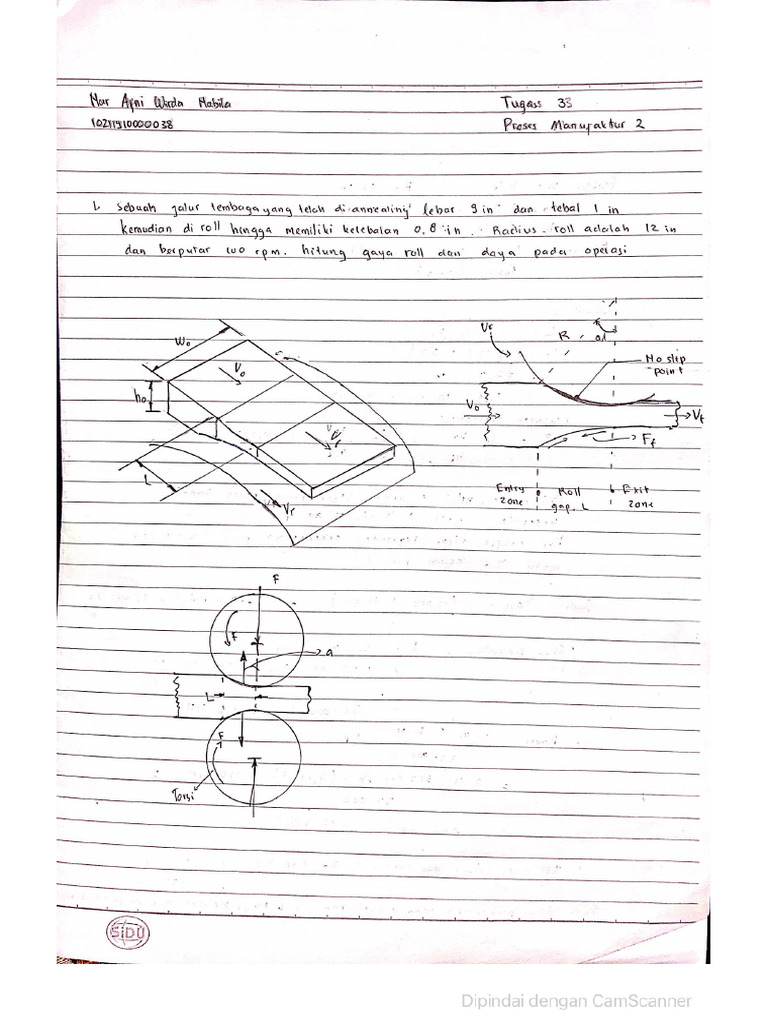 Nur Afni Wirda Nabila
Tugas 3B
10211910000038
Proses Manufaktur 2
1. Sebuah jalur tembaga yang telah di annealing lebar 9 in dan tebal 1 in
kemudian di roll hingga memiliki ketebalan 0,8 in. Radius roll adalah 12 in
dan berputar 100 rpm. hitung gaya roll dan daya pada operasi
Wo
Vo
ho
Vf
L
Vr
Vr
R
α
No slip
point
Vo
Vf
Ff
Entry
zone
Roll
gap L
Exit
zone
F
F
a
L
F
Torsi
SIDU
Dipindai dengan CamScanner